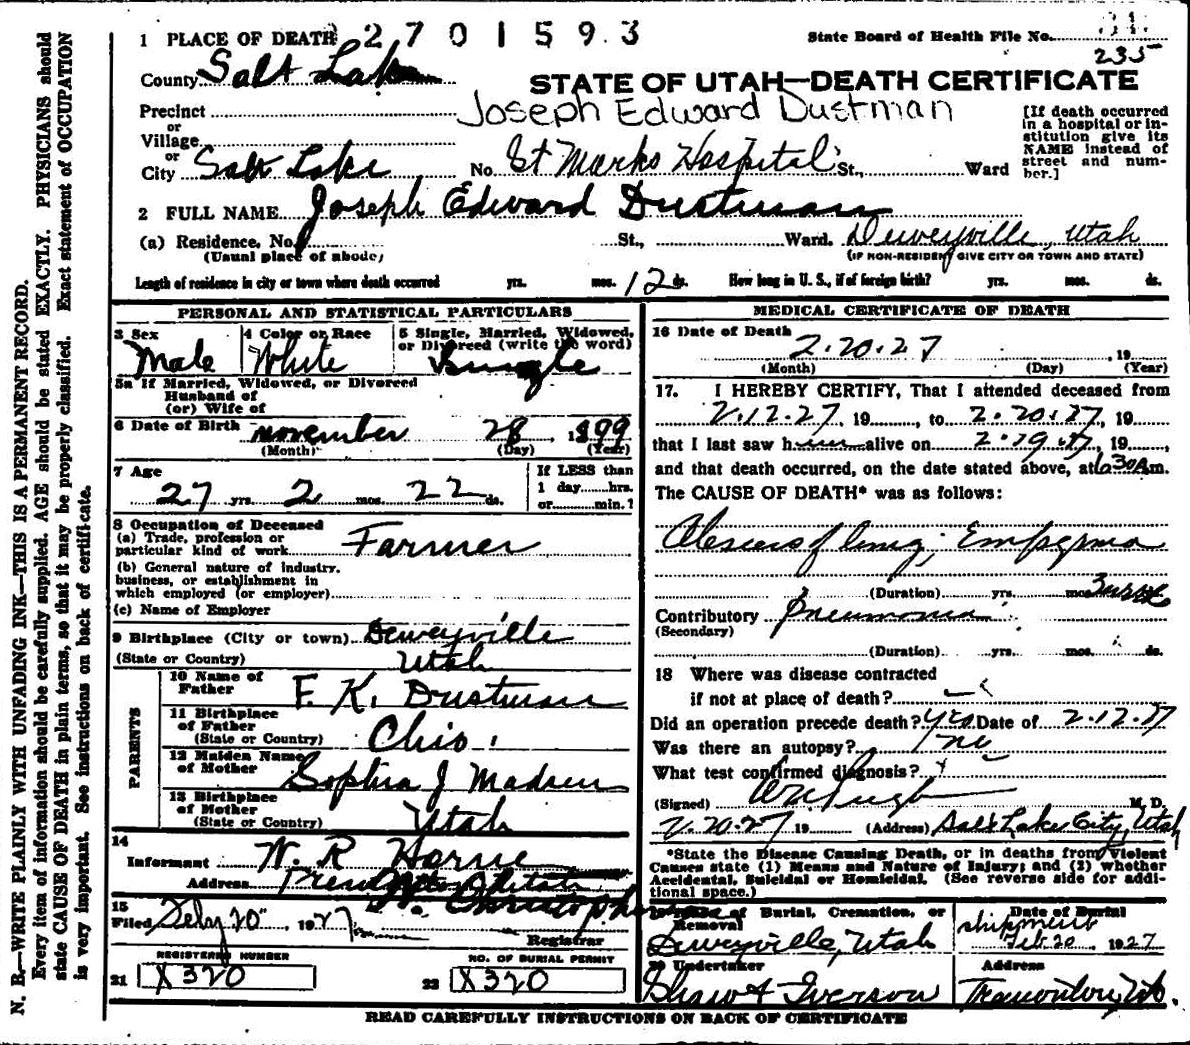 1 PLACE OF DEATH 2701593
State Board of Health File No.
235
County Salt Lake
STATE OF UTAH—DEATH CERTIFICATE
Precinct
Joseph Edward Dustman
or
Village
or
City Salt Lake No. St Marks Hospital St., Ward
[If death occurred
in a hospital or in-
stitution give its
NAME instead of
street and num-
ber.]
2 FULL NAME Joseph Edward Dustman
(a) Residence, No. St., Ward. Deweyville, Utah
(Usual place of abode) (IF NON-RESIDENT GIVE CITY OR TOWN AND STATE)
Length of residence in city or town where death occurred yrs. mos. 12 ds. How long in U. S., if of foreign birth? yrs. mos. ds.
PERSONAL AND STATISTICAL PARTICULARS
3 Sex 4 Color or Race 5 Single, Married, Widowed,
or Divorced (write the word)
Male White Single
5a If Married, Widowed, or Divorced
Husband of
(or) Wife of
6 Date of Birth November 28, 1899
(Month) (Day) (Year)
7 Age
27 yrs. 2 mos. 22 ds.
If LESS than
1 day hrs.
or min.?
8 Occupation of Deceased
(a) Trade, profession or
particular kind of work Farmer
(b) General nature of industry,
business, or establishment in
which employed (or employer)
(c) Name of Employer
9 Birthplace (City or town) Deweyville
(State or Country) Utah
PARENTS
10 Name of
Father F. K. Dustman
11 Birthplace
of Father
(State or Country) Ohio
12 Maiden Name
of Mother Sophia J Madsen
13 Birthplace
of Mother
(State or Country) Utah
14
Informant W. R Horne
Address
15
Filed 20 1927
Registrar
REGISTERED NUMBER NO. OF BURIAL PERMIT
21 X320 22 X320
MEDICAL CERTIFICATE OF DEATH
16 Date of Death
2.20.27, 19
(Month) (Day) (Year)
17. I HEREBY CERTIFY, That I attended deceased from
2.12.27, 19, to 2.20.27, 19
that I last saw him alive on 2.19.27, 19,
and that death occurred, on the date stated above, at 630 Am.
The CAUSE OF DEATH* was as follows:
Abscess of lung; Empyema
(Duration) yrs. mos.
Contributory Pneumonia
(Secondary)
(Duration) yrs. mos. ds.
18 Where was disease contracted
if not at place of death?
Did an operation precede death? yes Date of 2.12.27
Was there an autopsy? no
What test confirmed diagnosis?
(Signed) Pugh M. D.
2.20.27 19 (Address) Salt Lake City, Utah
*State the Disease Causing Death, or in deaths from Violent
Causes state (1) Means and Nature of Injury; and (2) whether
Accidental, Suicidal or Homicidal. (See reverse side for addi-
tional space.)
of Burial, Cremation, or
Removal
Deweyville, Utah
Date of Burial
shipment
Feb 20 1927
20 Undertaker Address
Shaw & Iverson Tremonton, Ut.
READ CAREFULLY INSTRUCTIONS ON BACK OF CERTIFICATE
N. B.—WRITE PLAINLY WITH UNFADING INK—THIS IS A PERMANENT RECORD.
Every item of information should be carefully supplied. AGE should be stated EXACTLY. PHYSICIANS should
state CAUSE OF DEATH in plain terms, so that it may be properly classified. Exact statement of OCCUPATION
is very important. See instructions on back of certificate.